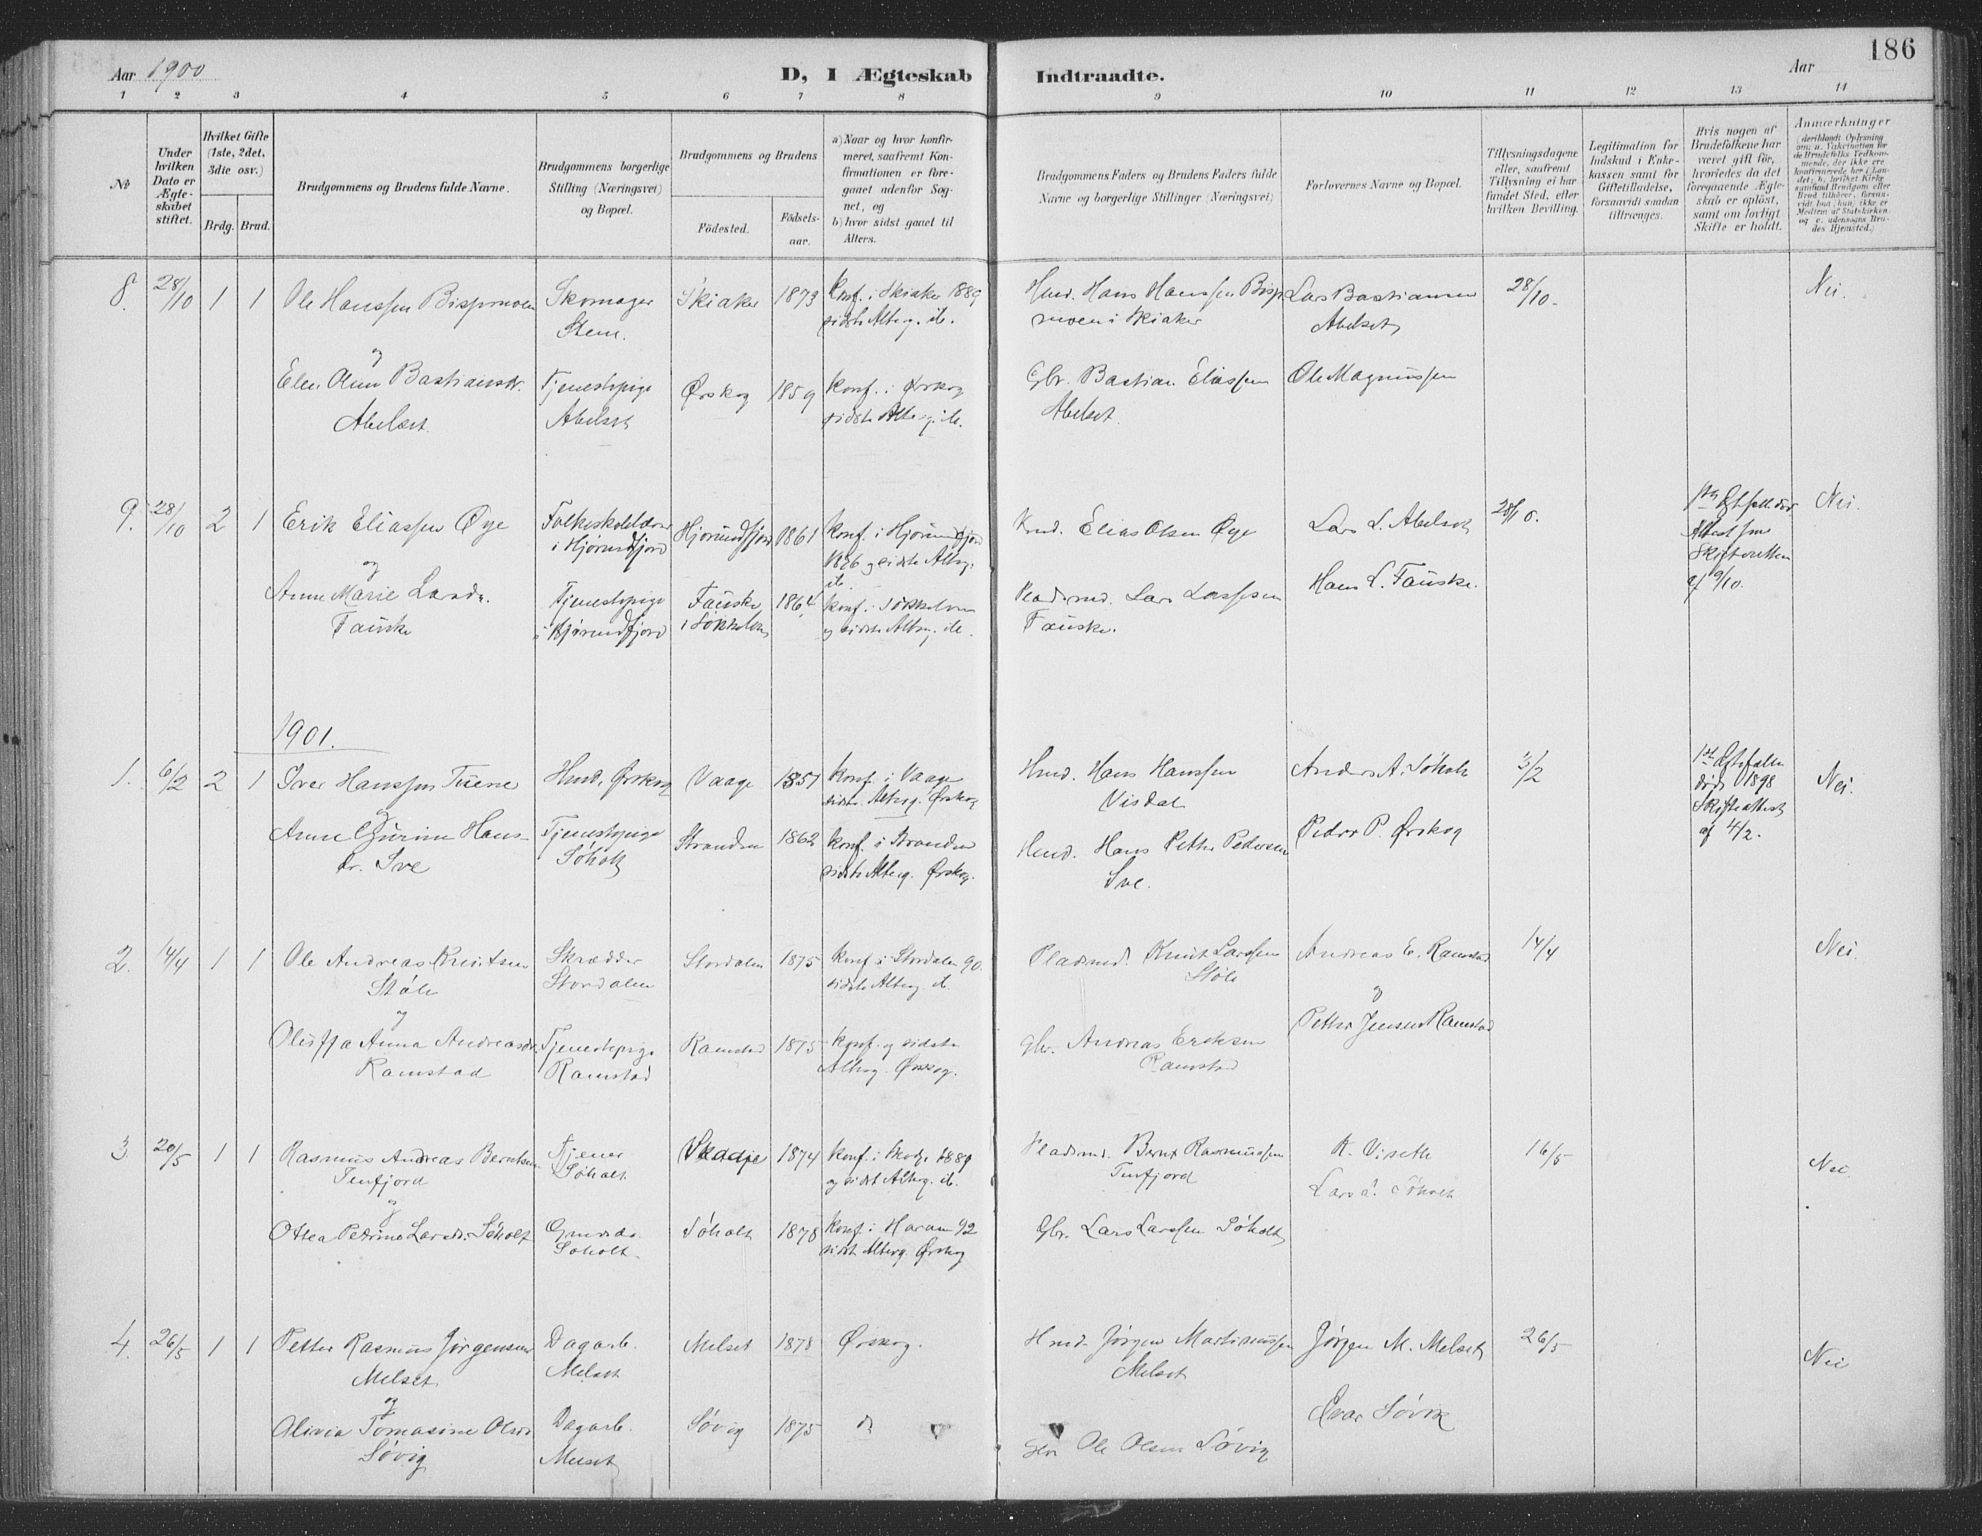 186
Aar 1900
D, I Ægteskab
Indtraadte.
Aar
1 2 3 4 5 6 7 8 9 10 11 12 13 14
No
Under hvilken Dato er Ægteskabet stiftet.
Hvilket Gifte (1ste, 2det, 3die osv.)
Brdg. Brud.
Brudgommens og Brudens fulde Navne.
Brudgommens borgerlige Stilling (Næringsvei) og Bopæl.
Brudgommens og Brudens
Fødested.
Fødselsaar.
a) Naar og hvor konfirmeret, saafremt Konfirmationen er foregaaet udenfor Sognet, og
b) hvor sidst gaaet til Alters.
Brudgommens Faders og Brudens Faders fulde Navne og borgerlige Stillinger (Næringsvei)
Forlovernes Navne og Bopæl.
Tillysningsdagene eller, saafremt Tillysning ei har fundet Sted, efter hvilken Bevilling.
Legitimation for Indskud i Enkekassen samt for Giftetilladelse, forsaavidt saadan tiltrænges.
Hvis nogen af Brudefolkene har været gift før, hvorledes da det foregaaende Ægteskab er opløst, samt om lovligt Skifte er holdt.
Anmærkninger
8. 28/10 1 1
Ole Hanssen Bispmoen
Skomager
Stene.
Skiaker 1873
Konf. i Skiaker 1889
sidste Alterg. ib.
Hmd. Hans Hanssen Bispmoen i Skiaker
Lars Bastiansen
Abelset
28/10.
Nei.
og
Elen Oline Bastiansdr.
Abelset.
Tjenestepige
Abelset
Ørskog 1859
Konf. i Ørskog
sidste Alterg. ib.
Gbr. Bastian Eliassen
Abelset.
Ole Magnussen
9. 28/10 2 1
Erik Eliassen Øye
i Hjørundfjord
Hjørundfjord 1861
Konf. i Hjørundfjord
1876 og sidste Alterg. ib.
Elias Olsen Øye
Lars L. Abelset
28/10.
Skifteretten
af 9/10.
Nei.
og
Anne Marie Larsdr.
Fauske
Tjenestepige
i Hjørundfjord
Fauske
i Søkkelven
1864
Konf. i Søkkelven
og sidste Alterg. ib.
Pladsmd. Lars Larssen
Fauske.
Hans L. Fauske.
1901.
1. 6/2 2 1
Iver Hanssen
Hmd. Ørskog
Vaage 1857
Konf. i Vaage
sidste Alterg. Ørskog
Hmd. Hans Hanssen
Visdal
Anders A. Søholt
3/2
død 1898
Skifteattest
af 4/2.
Nei.
og
Anne Gurine Hansdr. Sve
Tjenestepige
Søholt
Stranden 1862
Konf. i Stranden
sidste Alterg. Ørskog.
Hmd. Hans Petter Pedersen
Sve.
Peder P. Ørskog
2. 14/4 1 1
Ole Andreas Knutsen
Støle
Skrædder
Stordalen
Stordalen 1875
Konf. i Stordalen 90.
sidste Alterg. ib.
Pladsmd. Knut Larssen
Støle
Andreas E. Ramstad
14/4
Nei.
og
Oluffa Anna Andreasdr.
Ramstad
Tjenestepige
Ramstad
Ramstad 1875
Konf. og sidste
Alterg. Ørskog.
Gbr. Andreas Eriksen
Ramstad
og
Petter Jensen Ramstad
3. 20/5 1 1
Rasmus Andreas Berntsen
Tenfjord
Tjener
Søholt
Skodje 1874
Konf. i Skodje 1889
og sidst Alterg. ib.
Pladsmd. Bernt Rasmussen
Tenfjord
K. Viseth
16/5
Nei
og
Ottea Petrine Larsdr. Søholt
Søholt.
Søholt 1878
Konf. i Haram 92
sidst Alterg. Ørskog
Gbr. Lars Larssen Søholt
Søholt
4. 26/5 1 1
Petter Rasmus Jørgensen
Melset
Dagarb.
Melset
Melset 1878
Ørskog.
Hmd. Jørgen Martinussen
Melset
Jørgen M. Melset
26/5
Nei
og
Olivia Tomasine Olsdr.
Søvig
Dagarb.
Melset
Søvig 1875
Gbr Ole Olsen Søvig
Søvik